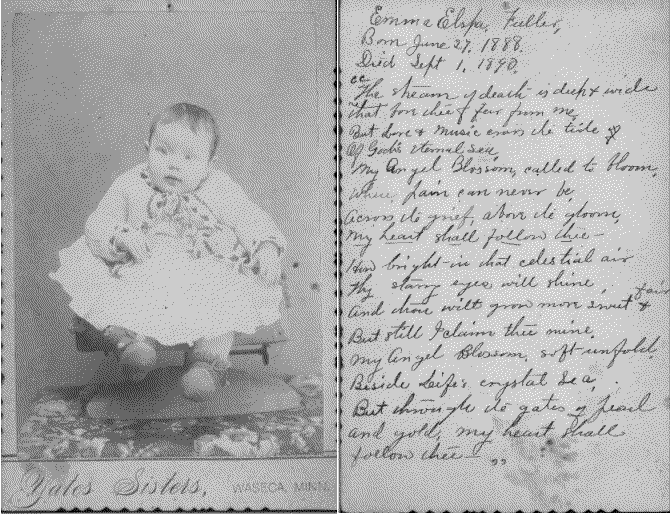 Yates Sisters, WASECA, MINN.
Emma Elspa. Fuller,
Born June 27, 1888.
Died Sept 1, 1890.
"The stream of death is deep & wide
that bore thee far from me,
But love & music cross its tide
Of God's eternal sea,
My Angel Blossom, called to bloom,
Where pain can never be,
Across its grief, above its gloom,
My heart shall follow thee—
How bright in that celestial air
Thy starry eyes will shine,
And thou wilt grow more sweet & fair
But still I claim thee mine.
My Angel Blossom, soft unfold
Beside Life's crystal Sea,
But through its gates of pearl
and gold, my heart shall
follow thee—"